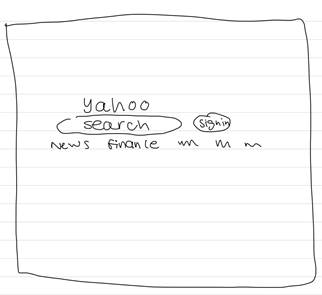 yahoo
search signin
News finance